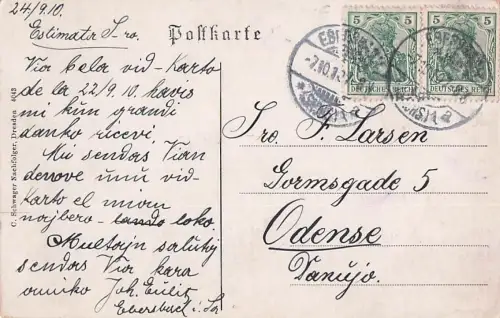 24/9.10.
Postkarte
Estimata S-ro.
Via bela vid-karto
de la 22/9.10. havis
mi kun grandi
danko ricevi.
Mi sendas Vian
denove unu vid-
karto el mian
najbero-lando loko.
Multajn salutoj
sendas Via kara
amiko Joh. Eulitz
Ebersbach i. Sa
C. Schwager Nachfolger, Dresden 4043
5 5
5 5
DEUTSCHES REICH
DEUTSCHES REICH
EBERSBACH
(SACHS)
Sro. F. Larsen
Gormsgade 5
Odense
Danujo.